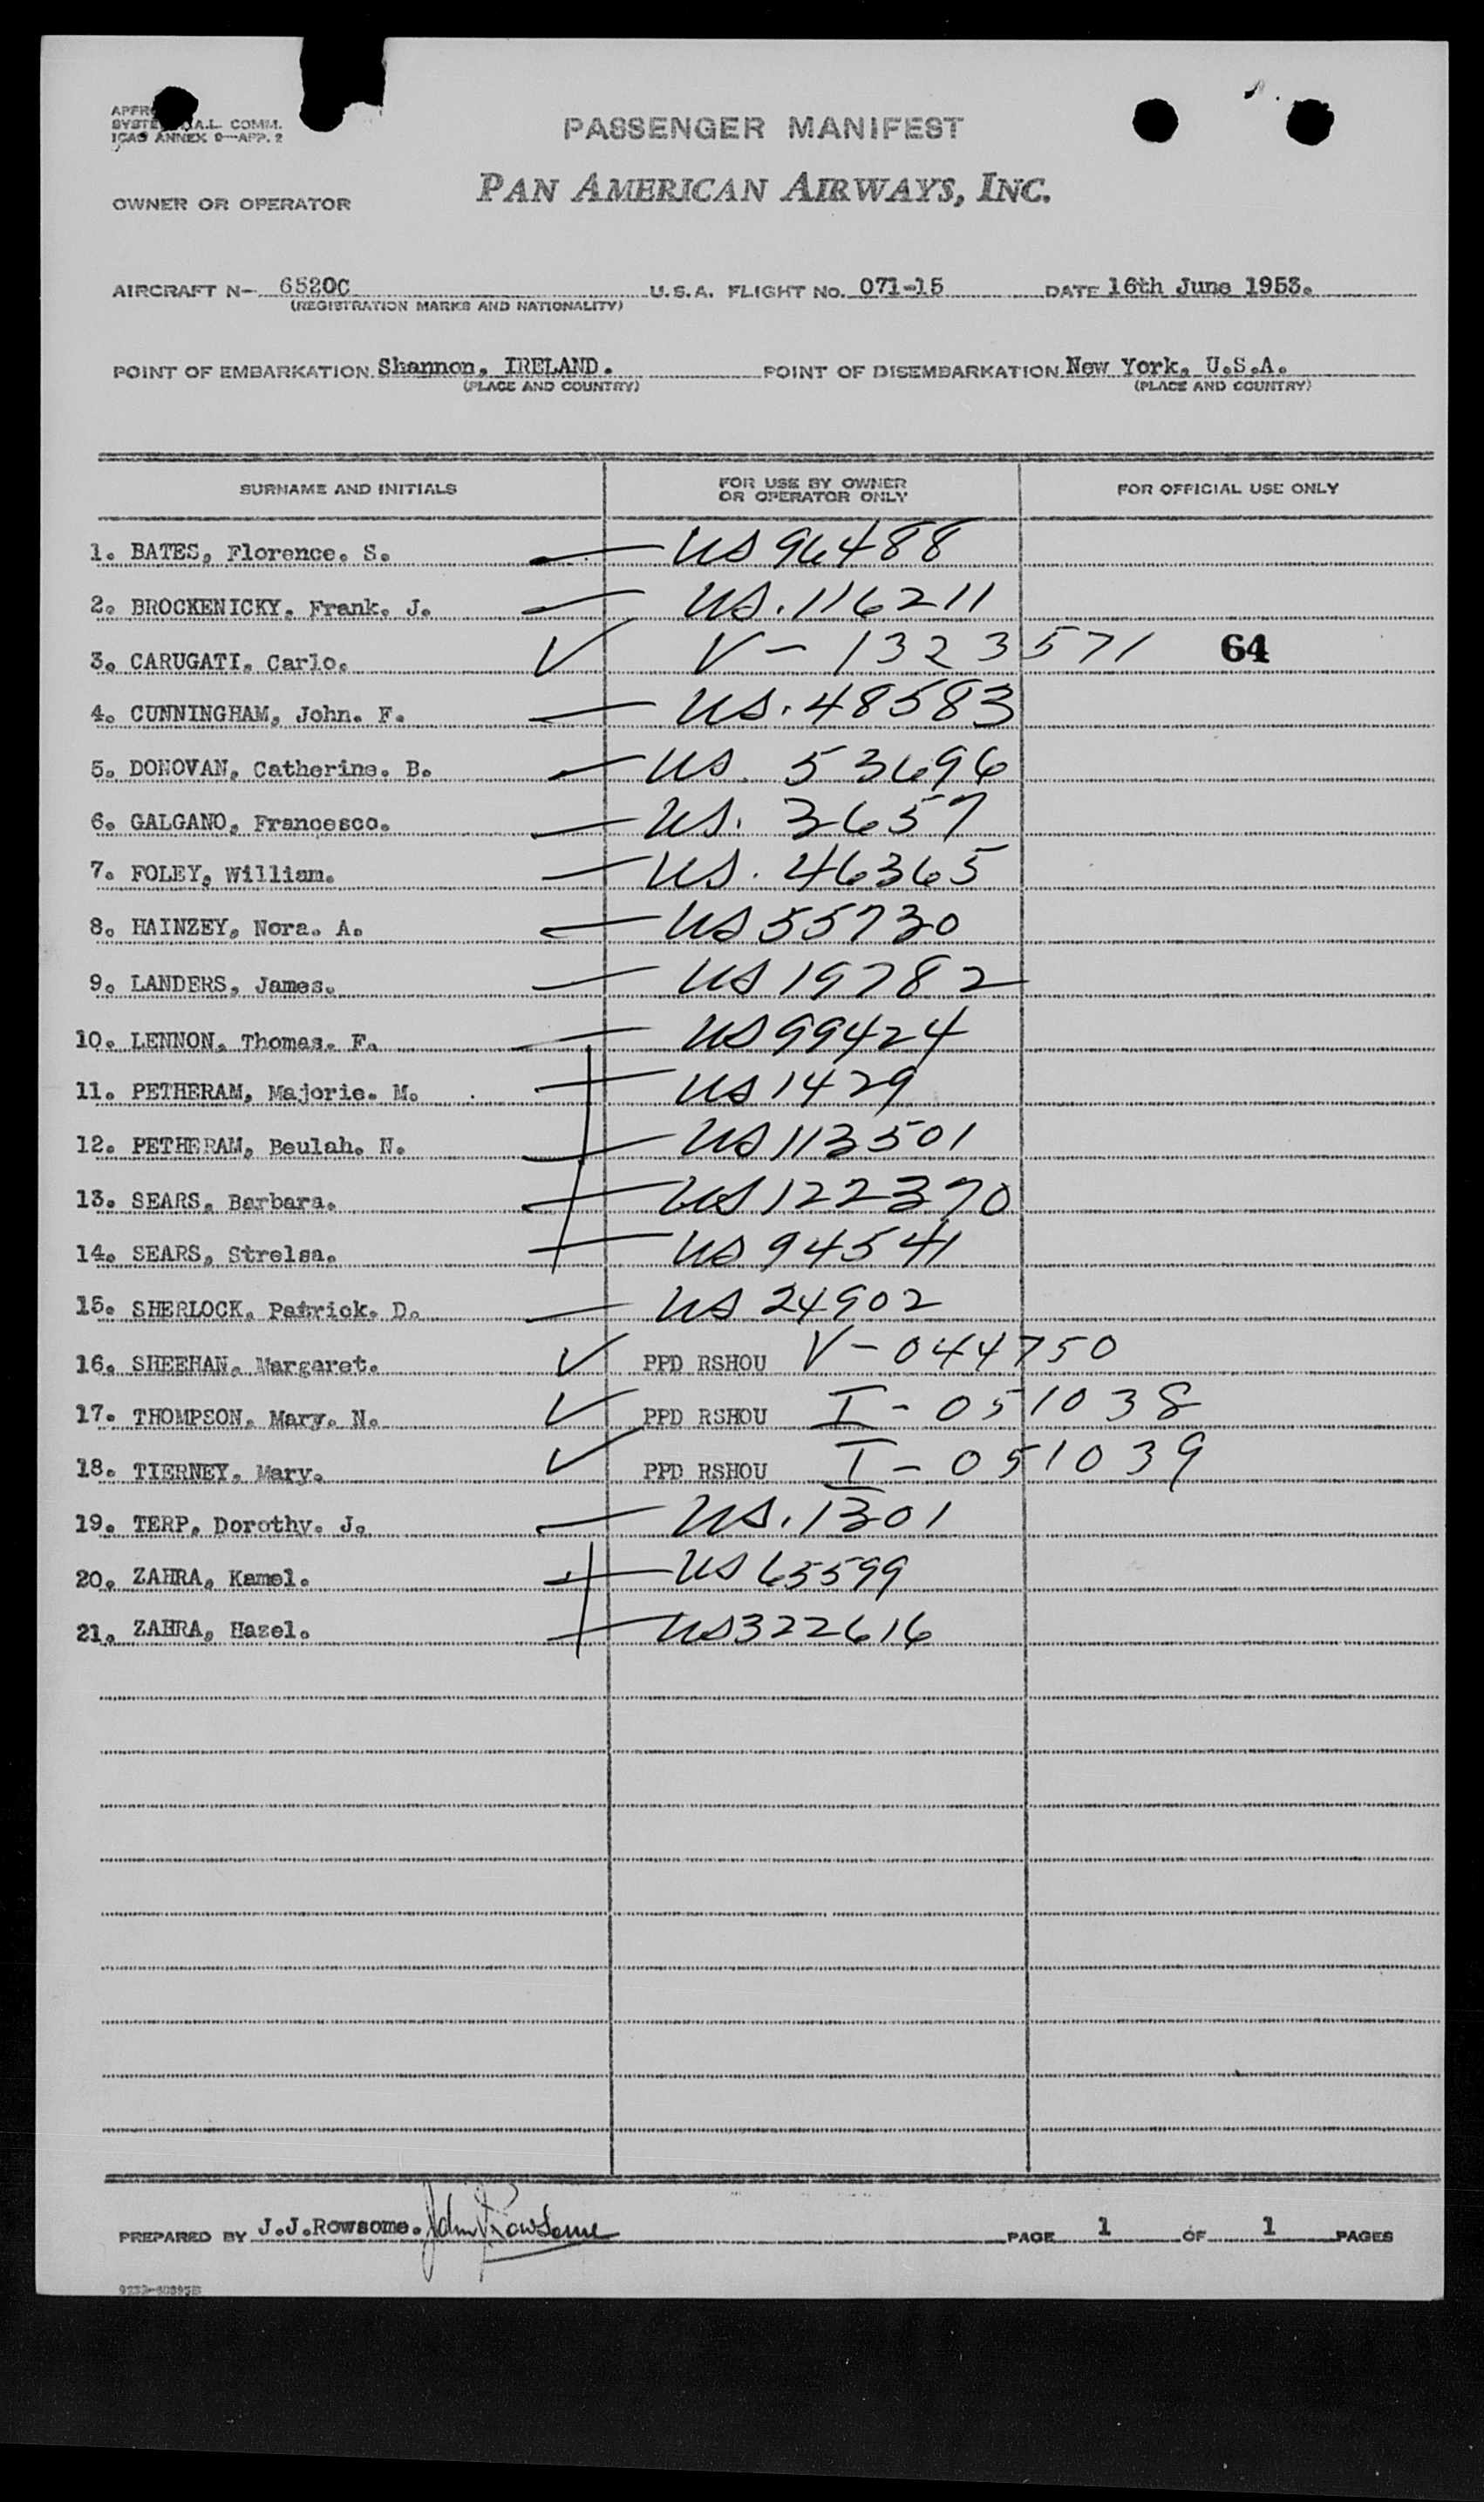 PASSENGER MANIFEST
SYSTE A.L. COMM.
ICAO ANNEX 9—APP. 2
PAN AMERICAN AIRWAYS, INC.
OWNER OR OPERATOR
AIRCRAFT N- 6520C U.S.A. FLIGHT NO. 071-15 DATE 16th June 1953.
(REGISTRATION MARKS AND NATIONALITY)
POINT OF EMBARKATION Shannon, IRELAND. POINT OF DISEMBARKATION New York, U.S.A.
(PLACE AND COUNTRY) (PLACE AND COUNTRY)
SURNAME AND INITIALS FOR USE BY OWNER OR OPERATOR ONLY FOR OFFICIAL USE ONLY
1. BATES, Florence. S. — US 96488
2. BROCKENICKY, Frank. J. — US. 116211
3. CARUGATI, Carlo. ✓ V-1323571 64
4. CUNNINGHAM, John. F. — US. 48583
5. DONOVAN, Catherine. B. — US. 53696
6. GALGANO, Francesco. — US. 3657
7. FOLEY, William. — US. 46365
8. HAINZEY, Nora. A. — US 55730
9. LANDERS, James. — US 19782
10. LENNON, Thomas. F. — US 99424
11. PETHERAM, Majorie. M. — US 1429
12. PETHERAM, Beulah. N. — US 113501
13. SEARS, Barbara. — US 122370
14. SEARS, Strelsa. — US 94541
15. SHERLOCK, Patrick. D. — US 24902
16. SHEEHAN, Margaret. ✓ PPD RSHOU V-044750
17. THOMPSON, Mary. N. ✓ PPD RSHOU I-051038
18. TIERNEY, Mary. ✓ PPD RSHOU I-051039
19. TERP, Dorothy. J. — US. 1301
20. ZAHRA, Kamel. — US 65599
21. ZAHRA, Hazel. — US 322616
PREPARED BY J.J.Rowsome. John J Rowsome PAGE 1 OF 1 PAGES